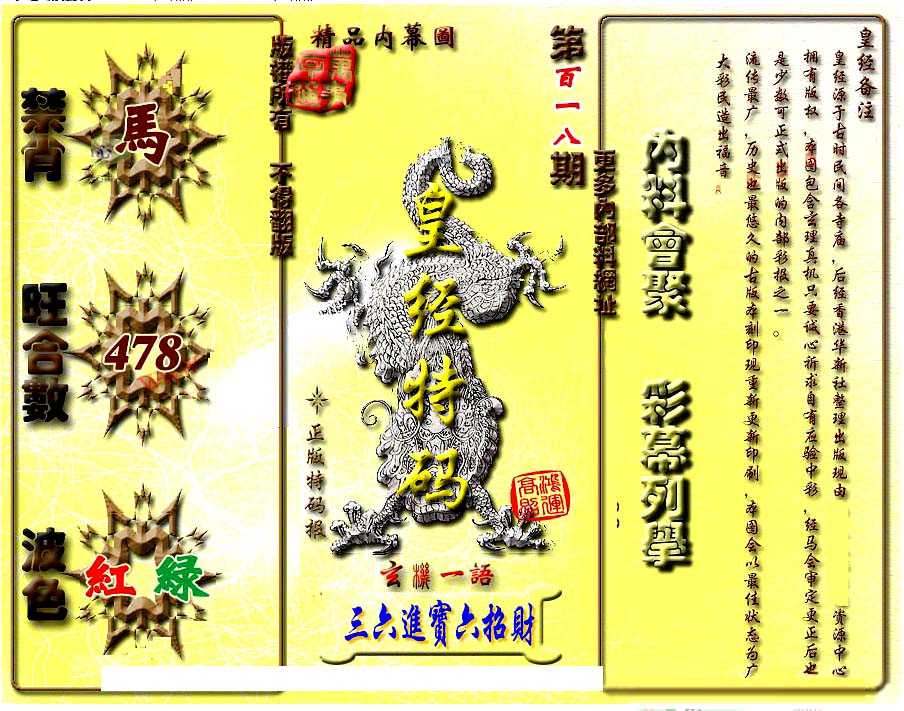 精品内幕圖
第百一八期
版權所有 不得翻版
更多內部料網址
禁肖
馬
旺合數
478
波色
紅 綠
皇经特码
正版特码报
鸿運高照
玄機一語
三六進寶六招財
内料會聚 彩幕列舉
皇经备注
皇经源于古时民间各寺庙，后经香港华新社整理出版现由资源中心
拥有版权，本图包含玄理真机只要诚心祈求自有应验中彩，经马会审定更正后也
是少数可正式出版的内部彩报之一。
流传最广，历史也最悠久的古版本刻印现重新更新印刷，本图会以最佳状态为广
大彩民造出福音